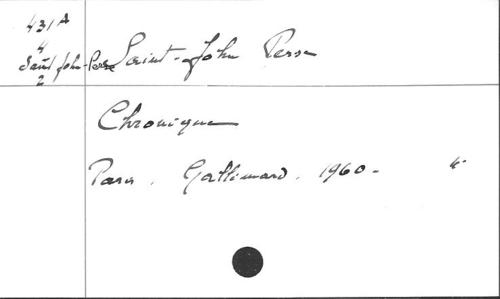 431 A
4
Saint John-Perse
2
Saint-John Perse
Chronique
Paris, Gallimard, 1960-